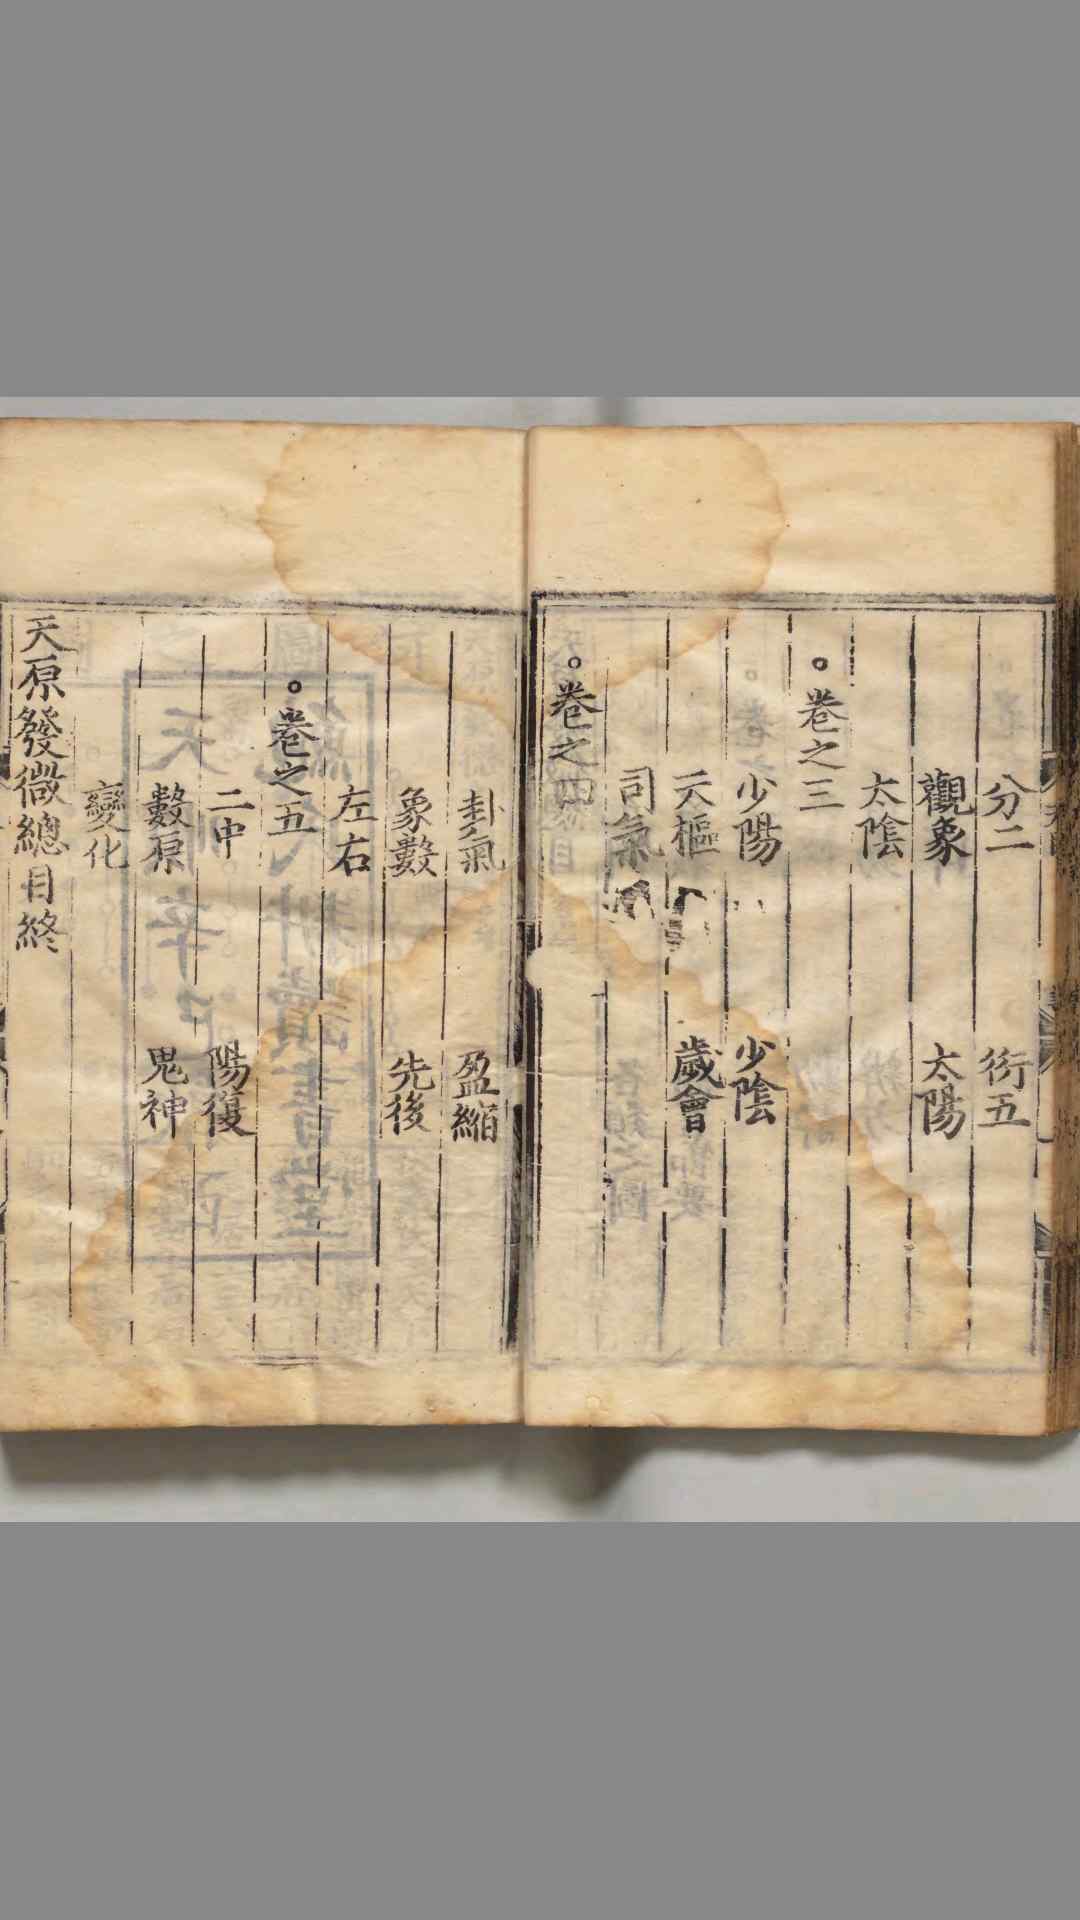 分二　衍五
觀象　太陽
太陰
○卷之三
少陽　少陰
天樞　歲會
司氣
○卷之四
卦氣　盈縮
象數　先後
左右
○卷之五
二中　陽復
數原　鬼神
變化
天原發微總目終